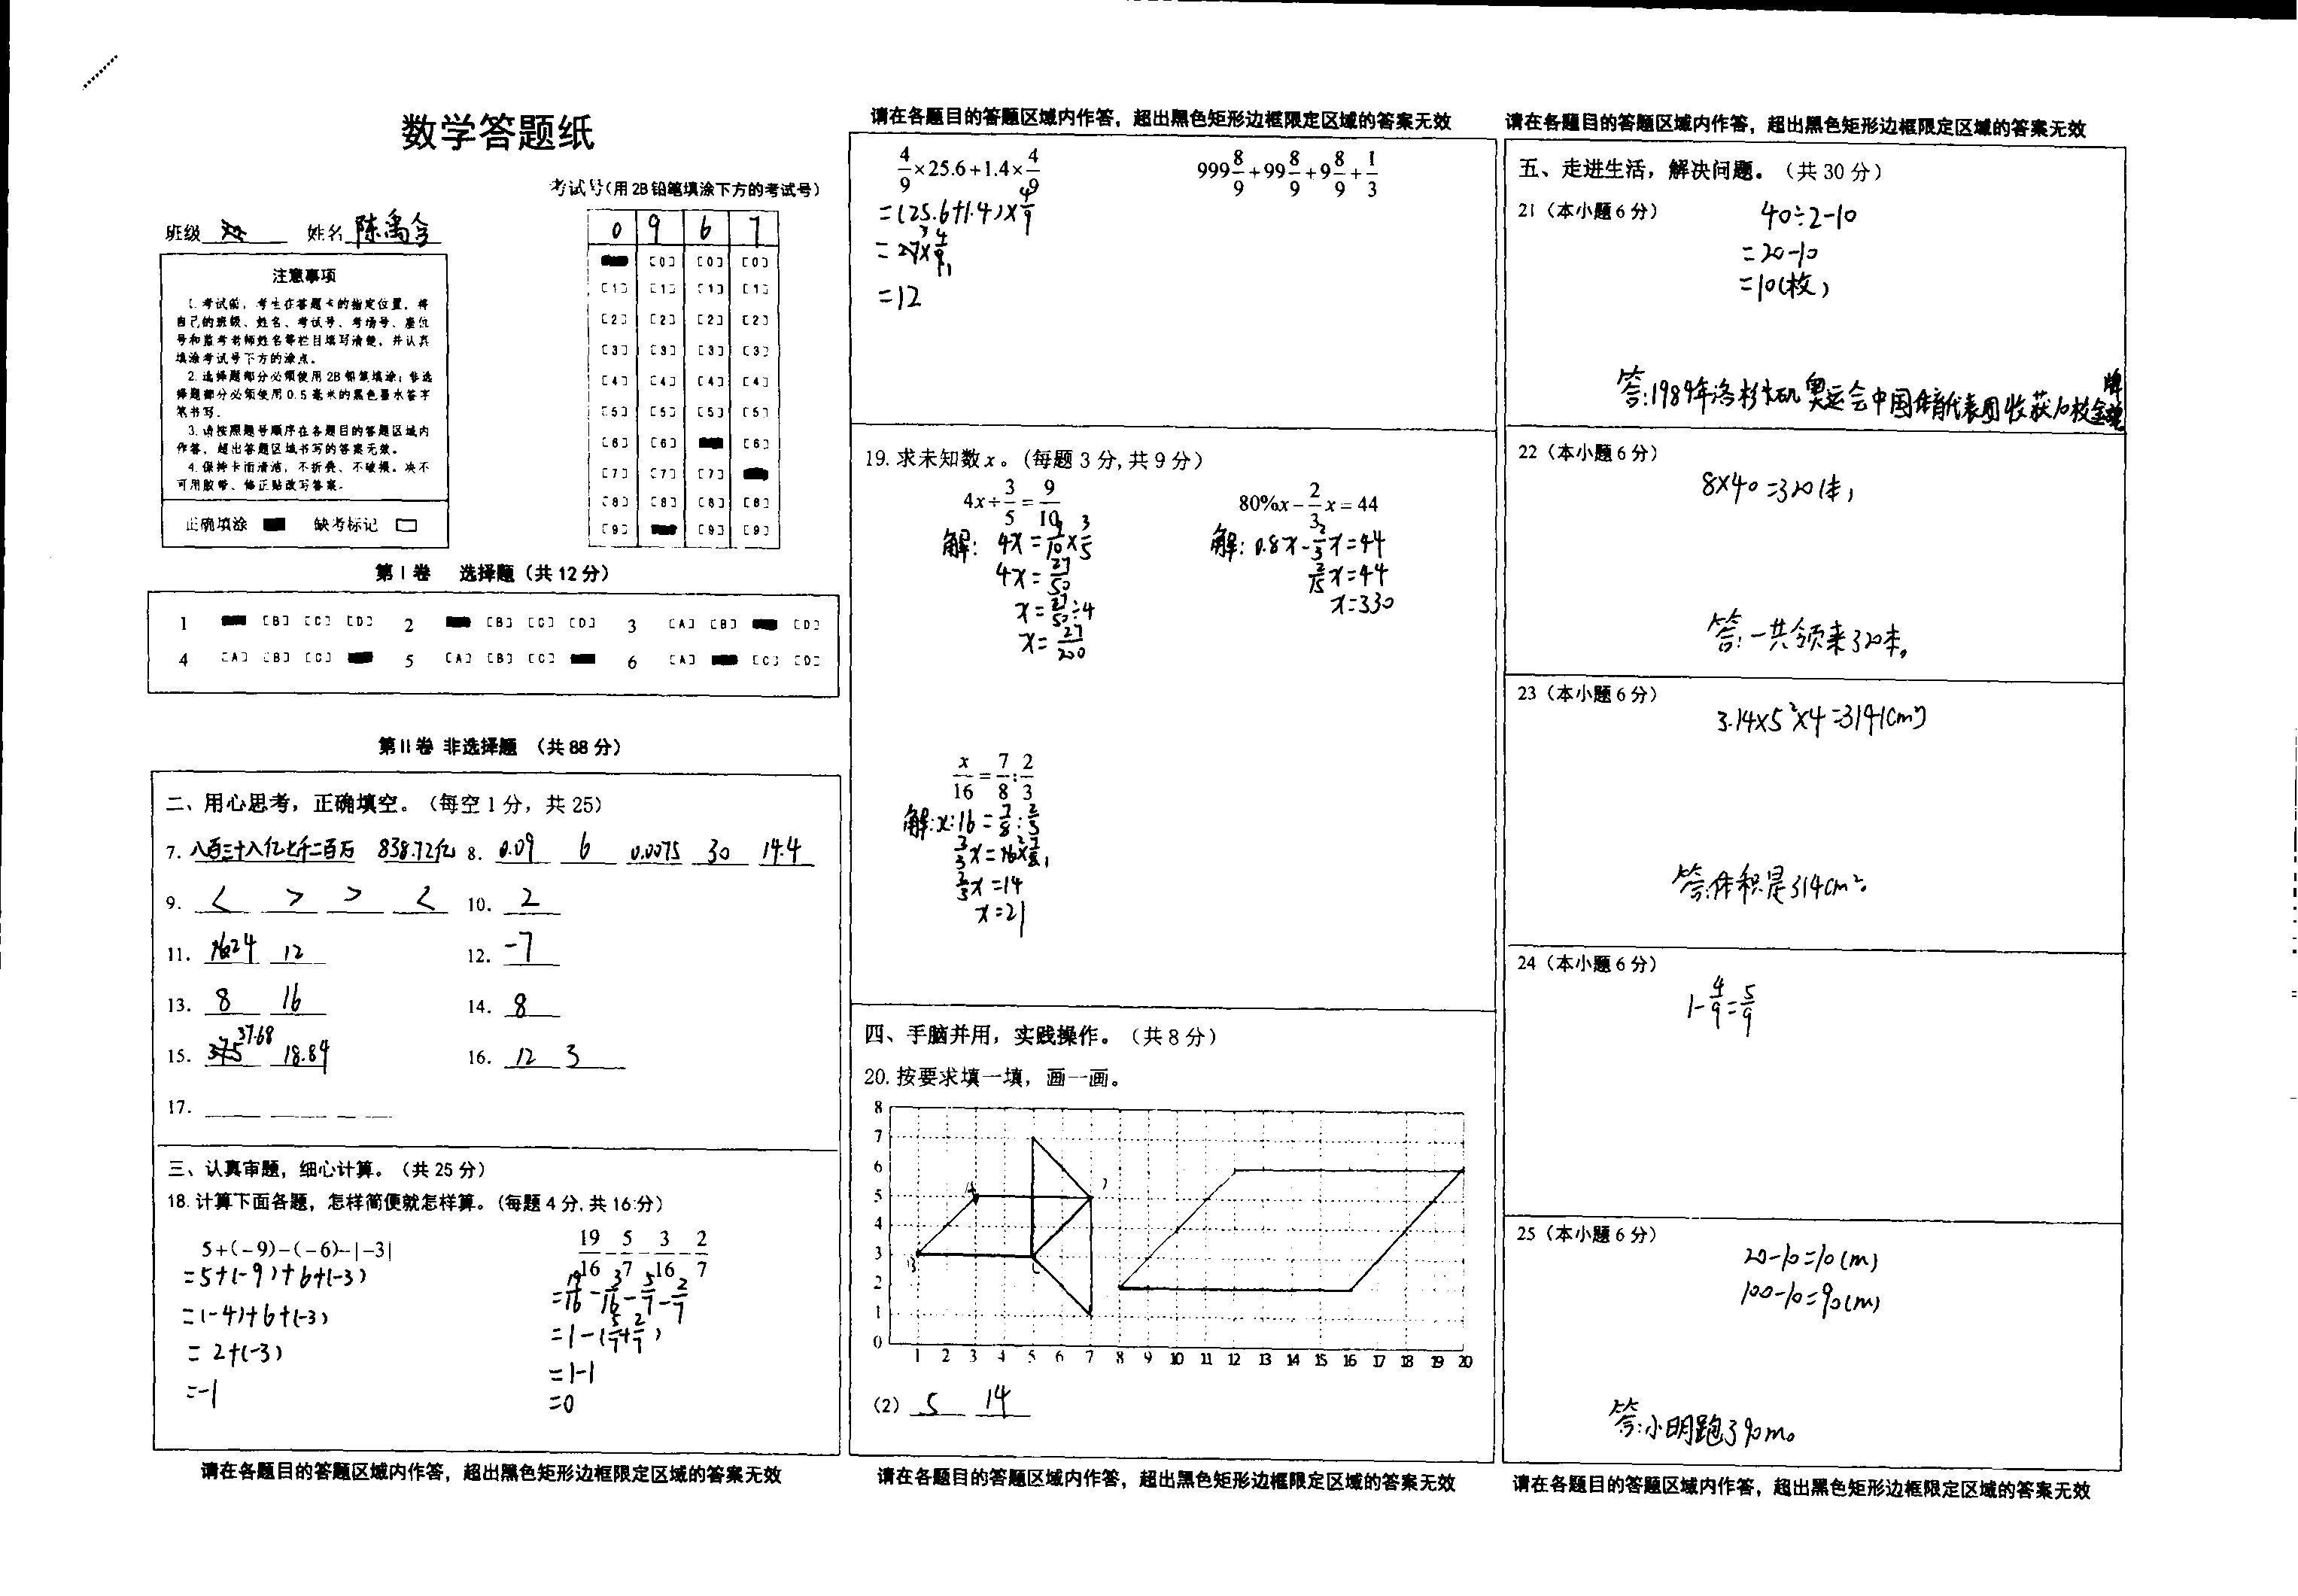 数学答题纸
考试号(用 2B 铅笔填涂下方的考试号)
班级 姓名 陈禹含
0 9 6 7
[0] [0] [0]
[1] [1] [1] [1]
[2] [2] [2] [2]
[3] [3] [3] [3]
[4] [4] [4] [4]
[5] [5] [5] [5]
[6] [6] [6]
[7] [7] [7]
[8] [8] [8] [8]
[9] [9] [9]
注意事项
1.考试前,考生在答题卡的指定位置,将
自己的班级、姓名、考试号、考场号、座位
号和监考老师姓名等栏目填写清楚,并认真
填涂考试号下方的涂点。
2.选择题部分必须使用2B铅笔填涂;非选
择题部分必须使用0.5毫米的黑色墨水签字
笔书写。
3.请按照题号顺序在各题目的答题区域内
作答,超出答题区域书写的答案无效。
4.保持卡面清洁,不折叠、不破损。决不
可用胶带、修正贴改写答案。
正确填涂 缺考标记
第Ⅰ卷 选择题(共12分)
1 [B] [C] [D] 2 [B] [C] [D] 3 [A] [B] [D]
4 [A] [B] [C] 5 [A] [B] [C] 6 [A] [C] [D]
第Ⅱ卷 非选择题 (共88分)
二、用心思考,正确填空。(每空1分,共25)
7. 八百三十八亿七千二百万 838.72亿 8. 0.09 6 0.0075 30 14.4
9. < > > < 10. 2
11. 24 12 12. -7
13. 8 16 14. 8
15. 37.68 18.84 16. 12 3
17.
三、认真审题,细心计算。(共25分)
18.计算下面各题,怎样简便就怎样算。(每题4分,共16分)
5+(-9)-(-6)-|-3|
=5+(-9)+6+(-3)
=(-4)+6+(-3)
=2+(-3)
=-1
19/16-5/7-3/16-2/7
=19/16-3/16-5/7-2/7
=1-(5/7+2/7)
=1-1
=0
请在各题目的答题区域内作答,超出黑色矩形边框限定区域的答案无效
请在各题目的答题区域内作答,超出黑色矩形边框限定区域的答案无效
4/9×25.6+1.4×4/9
=(25.6+1.4)×4/9
=27×4/9
=12
999 8/9+99 8/9+9 8/9+1/3
19.求未知数x。(每题3分,共9分)
4x÷3/5=9/10
解: 4x=9/10×3/5
4x=27/50
x=27/50÷4
x=27/200
80%x-2/3x=44
解: 0.8x-2/3x=44
2/15x=44
x=330
x/16=7/8:2/3
解:x:16=7/8:2/3
2/3x=16×7/8
2/3x=14
x=21
四、手脑并用,实践操作。(共8分)
20.按要求填一填,画一画。
8
7
6
5
4
3
2
1
0
A
B
C
1 2 3 4 5 6 7 8 9 10 11 12 13 14 15 16 17 18 19 20
(2) 5 14
请在各题目的答题区域内作答,超出黑色矩形边框限定区域的答案无效
请在各题目的答题区域内作答,超出黑色矩形边框限定区域的答案无效
五、走进生活,解决问题。(共30分)
21(本小题6分)
40÷2-10
=20-10
=10(枚)
答:1984年洛杉矶奥运会中国体育代表团收获10枚金牌
22(本小题6分)
8×40=320(本)
答:一共领来320本。
23(本小题6分)
3.14×5²×4=314(cm²)
答:体积是314cm²。
24(本小题6分)
1-4/9=5/9
25(本小题6分)
20-10=10(m)
100-10=90(m)
答:小明跑了90m。
请在各题目的答题区域内作答,超出黑色矩形边框限定区域的答案无效